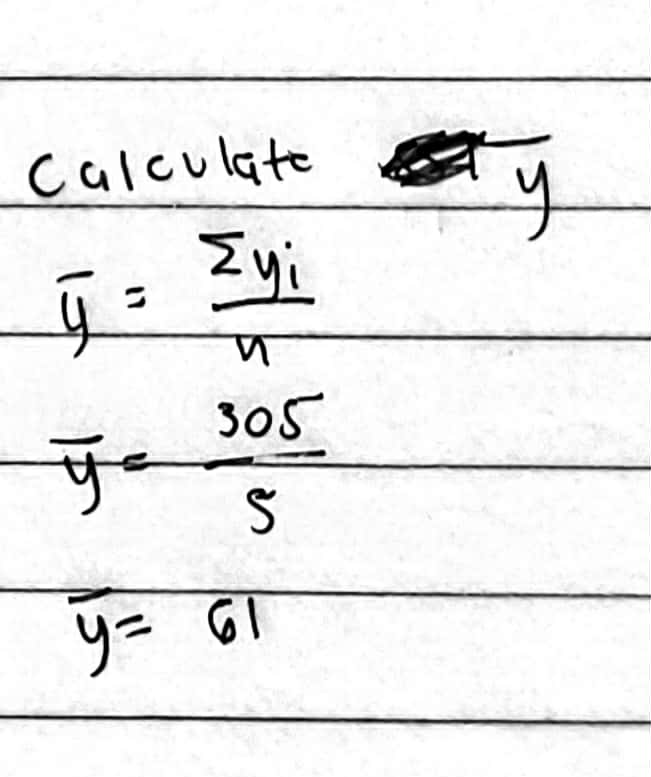 Calculate ȳ
ȳ = Σyi
n
ȳ = 305
5
ȳ = 61